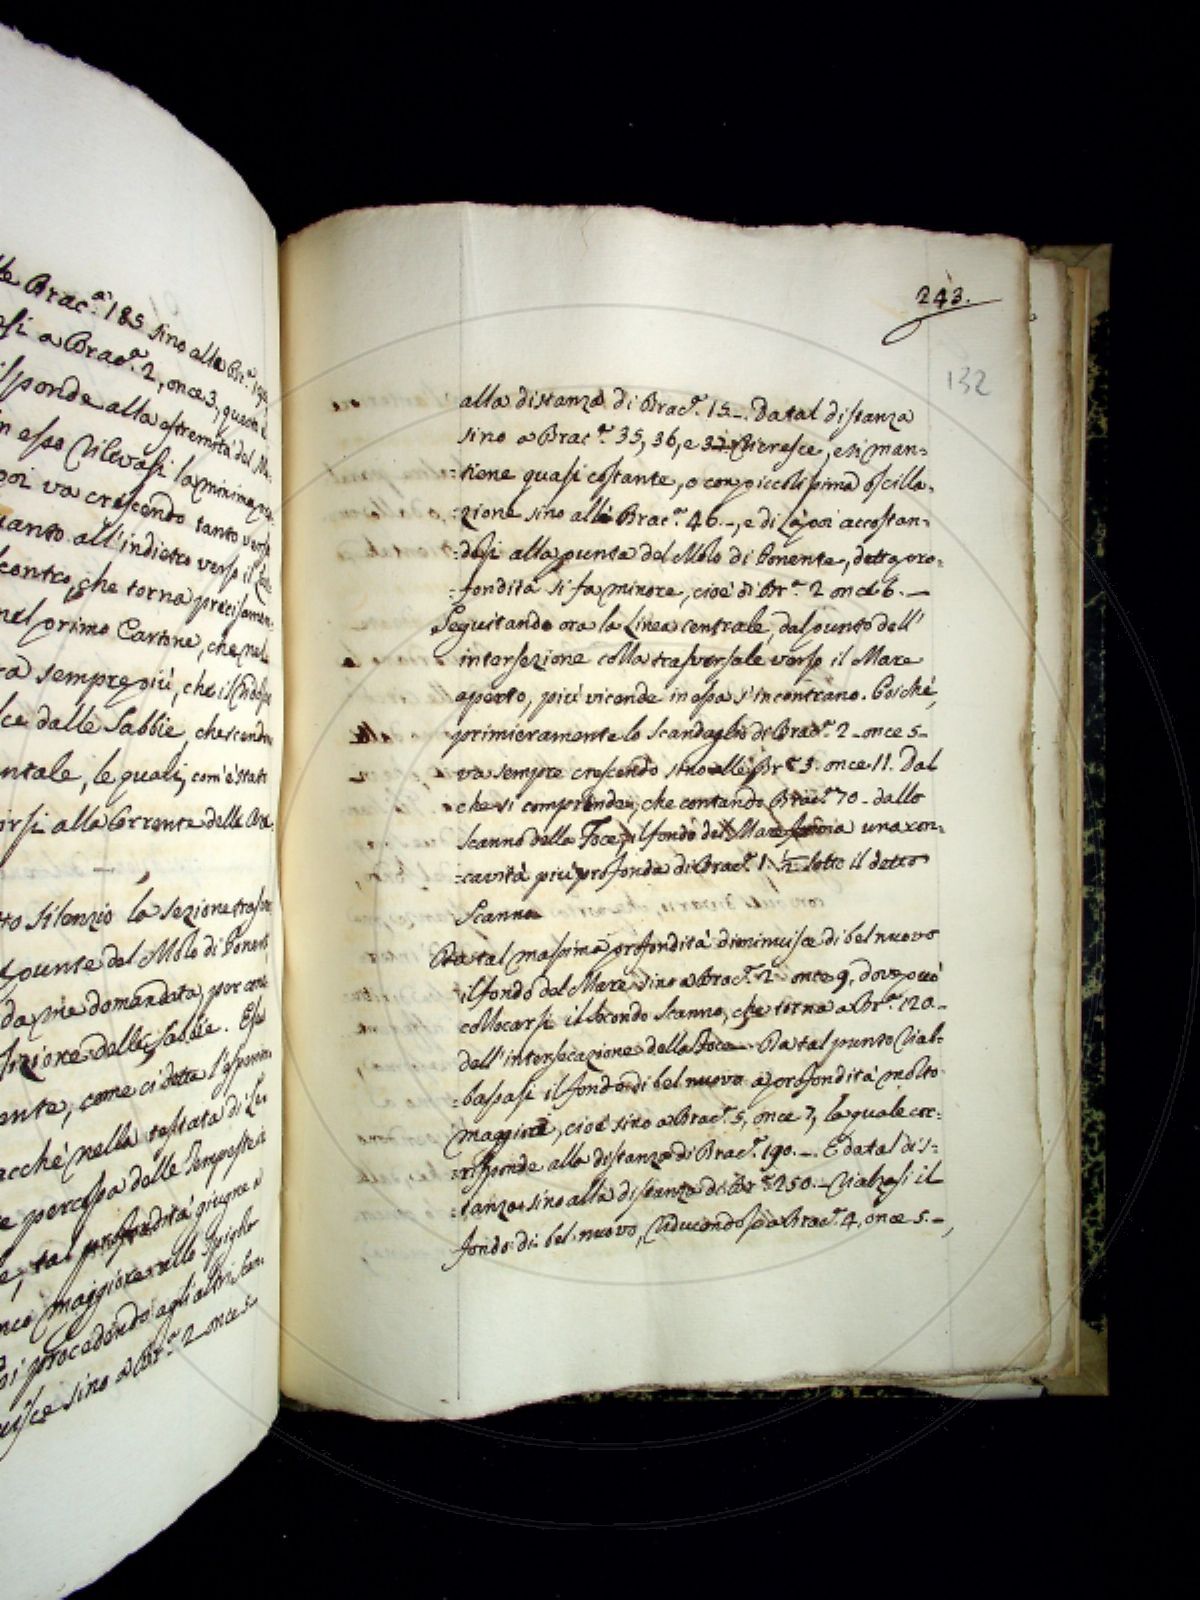 lle Brac.ª 185 sino alle Br.ª 190
asi a Brac.ª 2, once 3, questa è
isponde alla estremità del Mo-
n esso rilevasi la minima
poi va crescendo tanto verso
uanto all'indietro verso il
contro, che torna precisamen-
nel primo Cartone, che nel
ra sempre più, che il
sce dalle Sabbie, che scendon
ntale, le quali, com'è stato
irsi alla Corrente delle
tto silenzio la sezione trasv
l punte del Molo di Ponent
da me domandata per con
sizione delle Sabbie. Ess
ente, come ci detta l'esperien
acchè nella testata di
e percossa dalle Tempeste
e, tal profondità giugne a
nco maggiore nello spiglio
oi procedendo agli altri
uisce sino a Br.ª 2 once 5
243.
132
alla distanza di Brac.ª 15 -. Da tal distanza
sino a Brac.ª 35, 36, e 37 ricresce, e si man-
-tiene quasi costante, o con piccolissima oscilla-
-zione sino alle Brac.ª 46 -, e di là poi accostan-
-dosi alla punta del Molo di Ponente, detta pro-
-fondità si fa minore, cioè di Br.ª 2 once 6. -
Seguitando ora la Linea centrale, dal punto dell'
intersezione colla trasversale verso il Mare
aperto, più vicende in essa s'incontrano. Poichè,
primieramente lo scandaglio di Brac.ª 2 - once 5 -
va sempre crescendo sino alle Br.ª 3. once 11. Dal
che si comprende, che contando Brac.ª 70 - dallo
Scanno della Foce, il fondo del Mare forma una con-
-cavità più profonda di Brac.ª 1 ½ sotto il detto
Scanno
Da tal massima profondità diminuisce di bel nuovo
il fondo del Mare sino a Brac.ª 2 - once 9, dove può
collocarsi il secondo Scanno, che torna a Br.ª 120 -
dell'intersecazione della Foce - Da tal punto riab-
-bassasi il fondo di bel nuovo a profondità molto
maggiore, cioè sino a Brac.ª 5, once 7, la quale cor-
-risponde alla distanza di Brac.ª 190. - E da tal dis-
-tanza sino alla distanza di Br.ª 250. - rialzasi il
fondo di bel nuovo, riducendosi a Brac.ª 4, once 5 -,